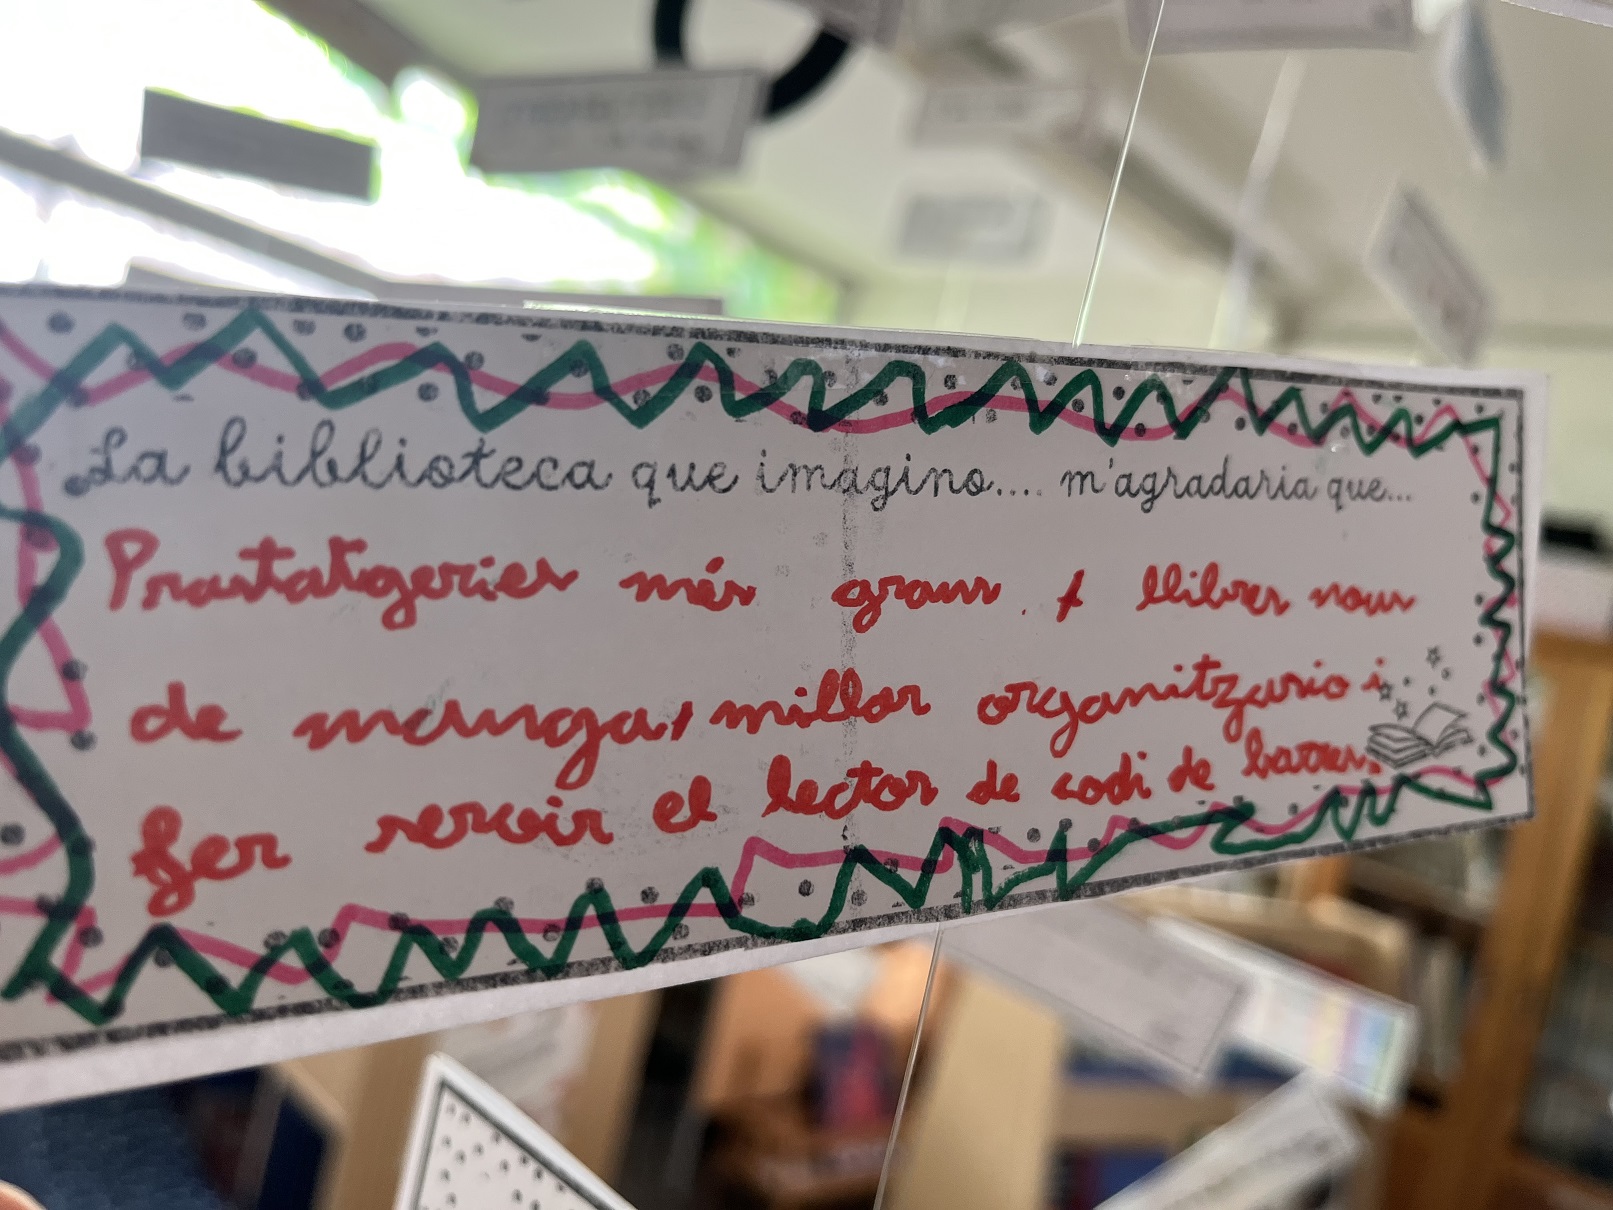 La biblioteca que imagino.... m'agradaria que...
Prastatgeries més grans. + llibres nous
de manga, millor organitzasio i
fer servir el lector de codi de barres.